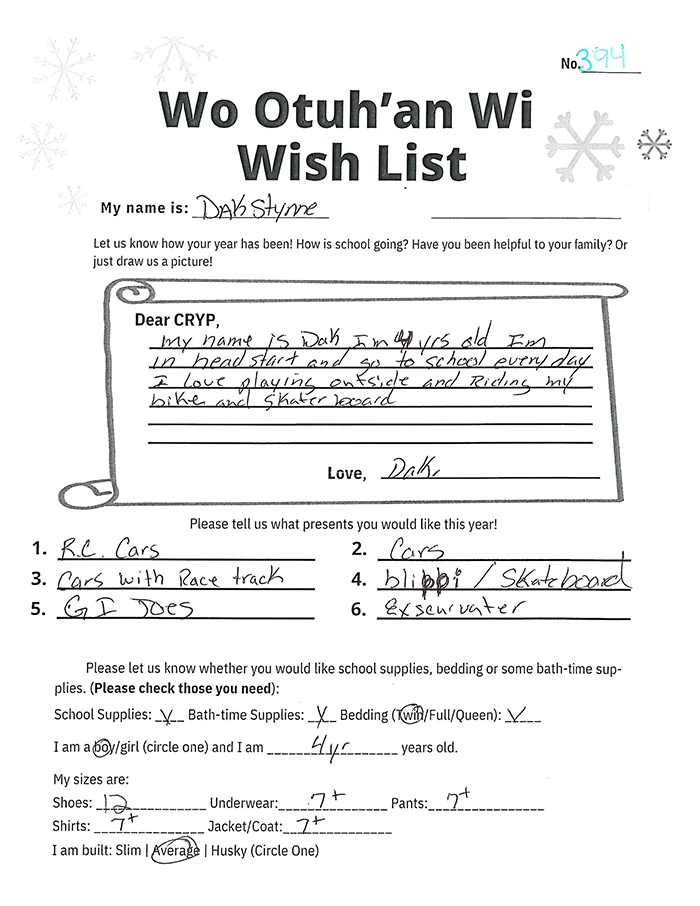 No. 394
Wo Otuh'an Wi
Wish List
My name is: Dak Stynne
Let us know how your year has been! How is school going? Have you been helpful to your family? Or
just draw us a picture!
Dear CRYP,
my name is Dak Im 4 yrs old Im
in head start and go to school every day
I love playing outside and Riding my
bike and skater board
Love, Dak.
Please tell us what presents you would like this year!
1. R.C. Cars 2. Cars
3. Cars with Race track 4. blippi / Skateboard
5. G I Joes 6. Exscurvater
Please let us know whether you would like school supplies, bedding or some bath-time sup-
plies. (Please check those you need):
School Supplies: X Bath-time Supplies: X Bedding (Twin/Full/Queen): ✓
I am a boy/girl (circle one) and I am 4 yr years old.
My sizes are:
Shoes: 12 Underwear: 7+ Pants: 7+
Shirts: 7+ Jacket/Coat: 7+
I am built: Slim | Average | Husky (Circle One)